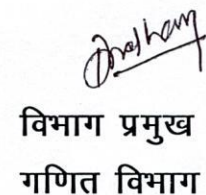 विभाग प्रमुख
गणित विभाग